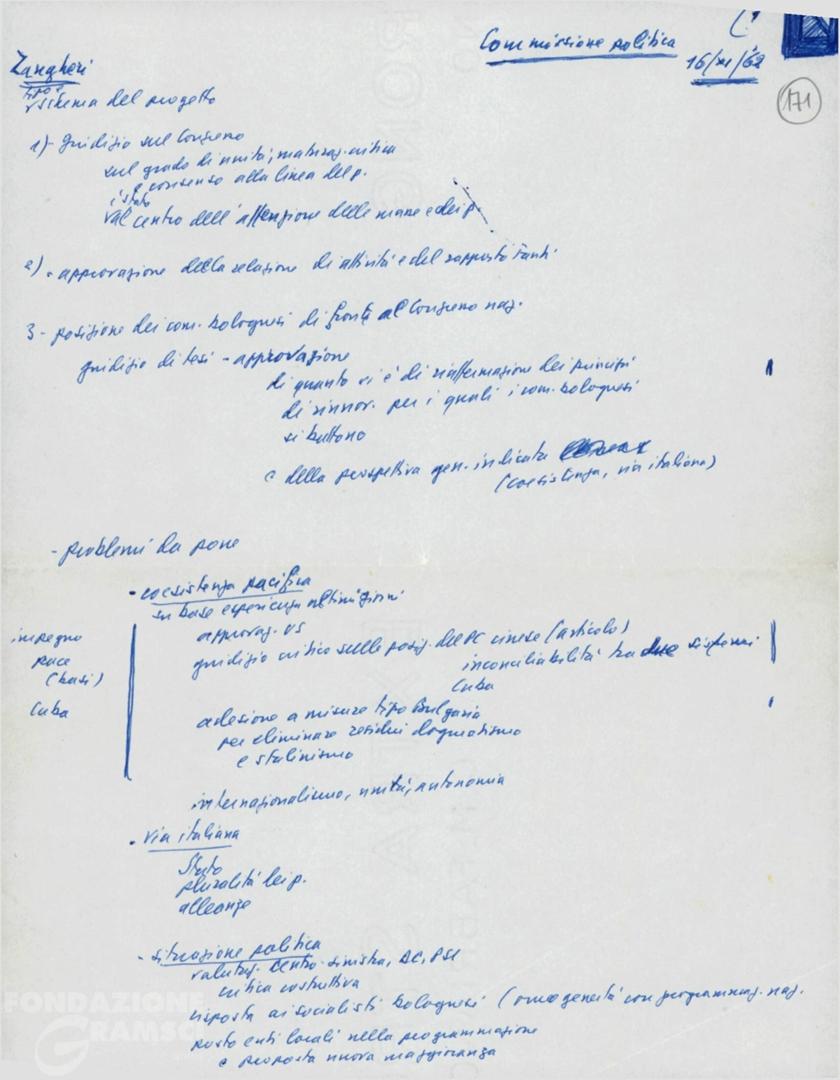 Commissione politica
16/XI/62
171
Zangheri
schema del progetto
1)- giudizio sul Congresso
sul grado di unità, maturaz. critica
e consenso alla linea del p.
è stato
al centro dell'attenzione delle masse e dei p.
2) - approvazione della relazione di attività e del rapporto Fanti
3 - posizione dei com. bolognesi di fronte al Congresso naz.
giudizio di tesi - approvazione
di quanto vi è di riaffermazione dei principi
di rinnov. per i quali i com. bolognesi
si battono
e della prospettiva gen. indicata
(coesistenza, via italiana)
- problemi da porre
- coesistenza pacifica
su base esperienza ultimi giorni
approvaz. US
giudizio critico sulle posiz. del PC cinese (articolo)
inconciliabilità tra due sistemi
Cuba
adesione a misure tipo Bulgaria
per eliminare residui dogmatismo
e stalinismo
internazionalismo, unità, autonomia
impegno
pace
(basi)
Cuba
- via italiana
Stato
pluralità dei p.
alleanze
- situazione politica
valutaz. centro-sinistra, DC, PSI
critica costruttiva
risposta ai socialisti bolognesi (omogeneità con programmaz. naz.
posto enti locali nella programmazione
e proposta nuova maggioranza
FONDAZIONE
GRAMSCI